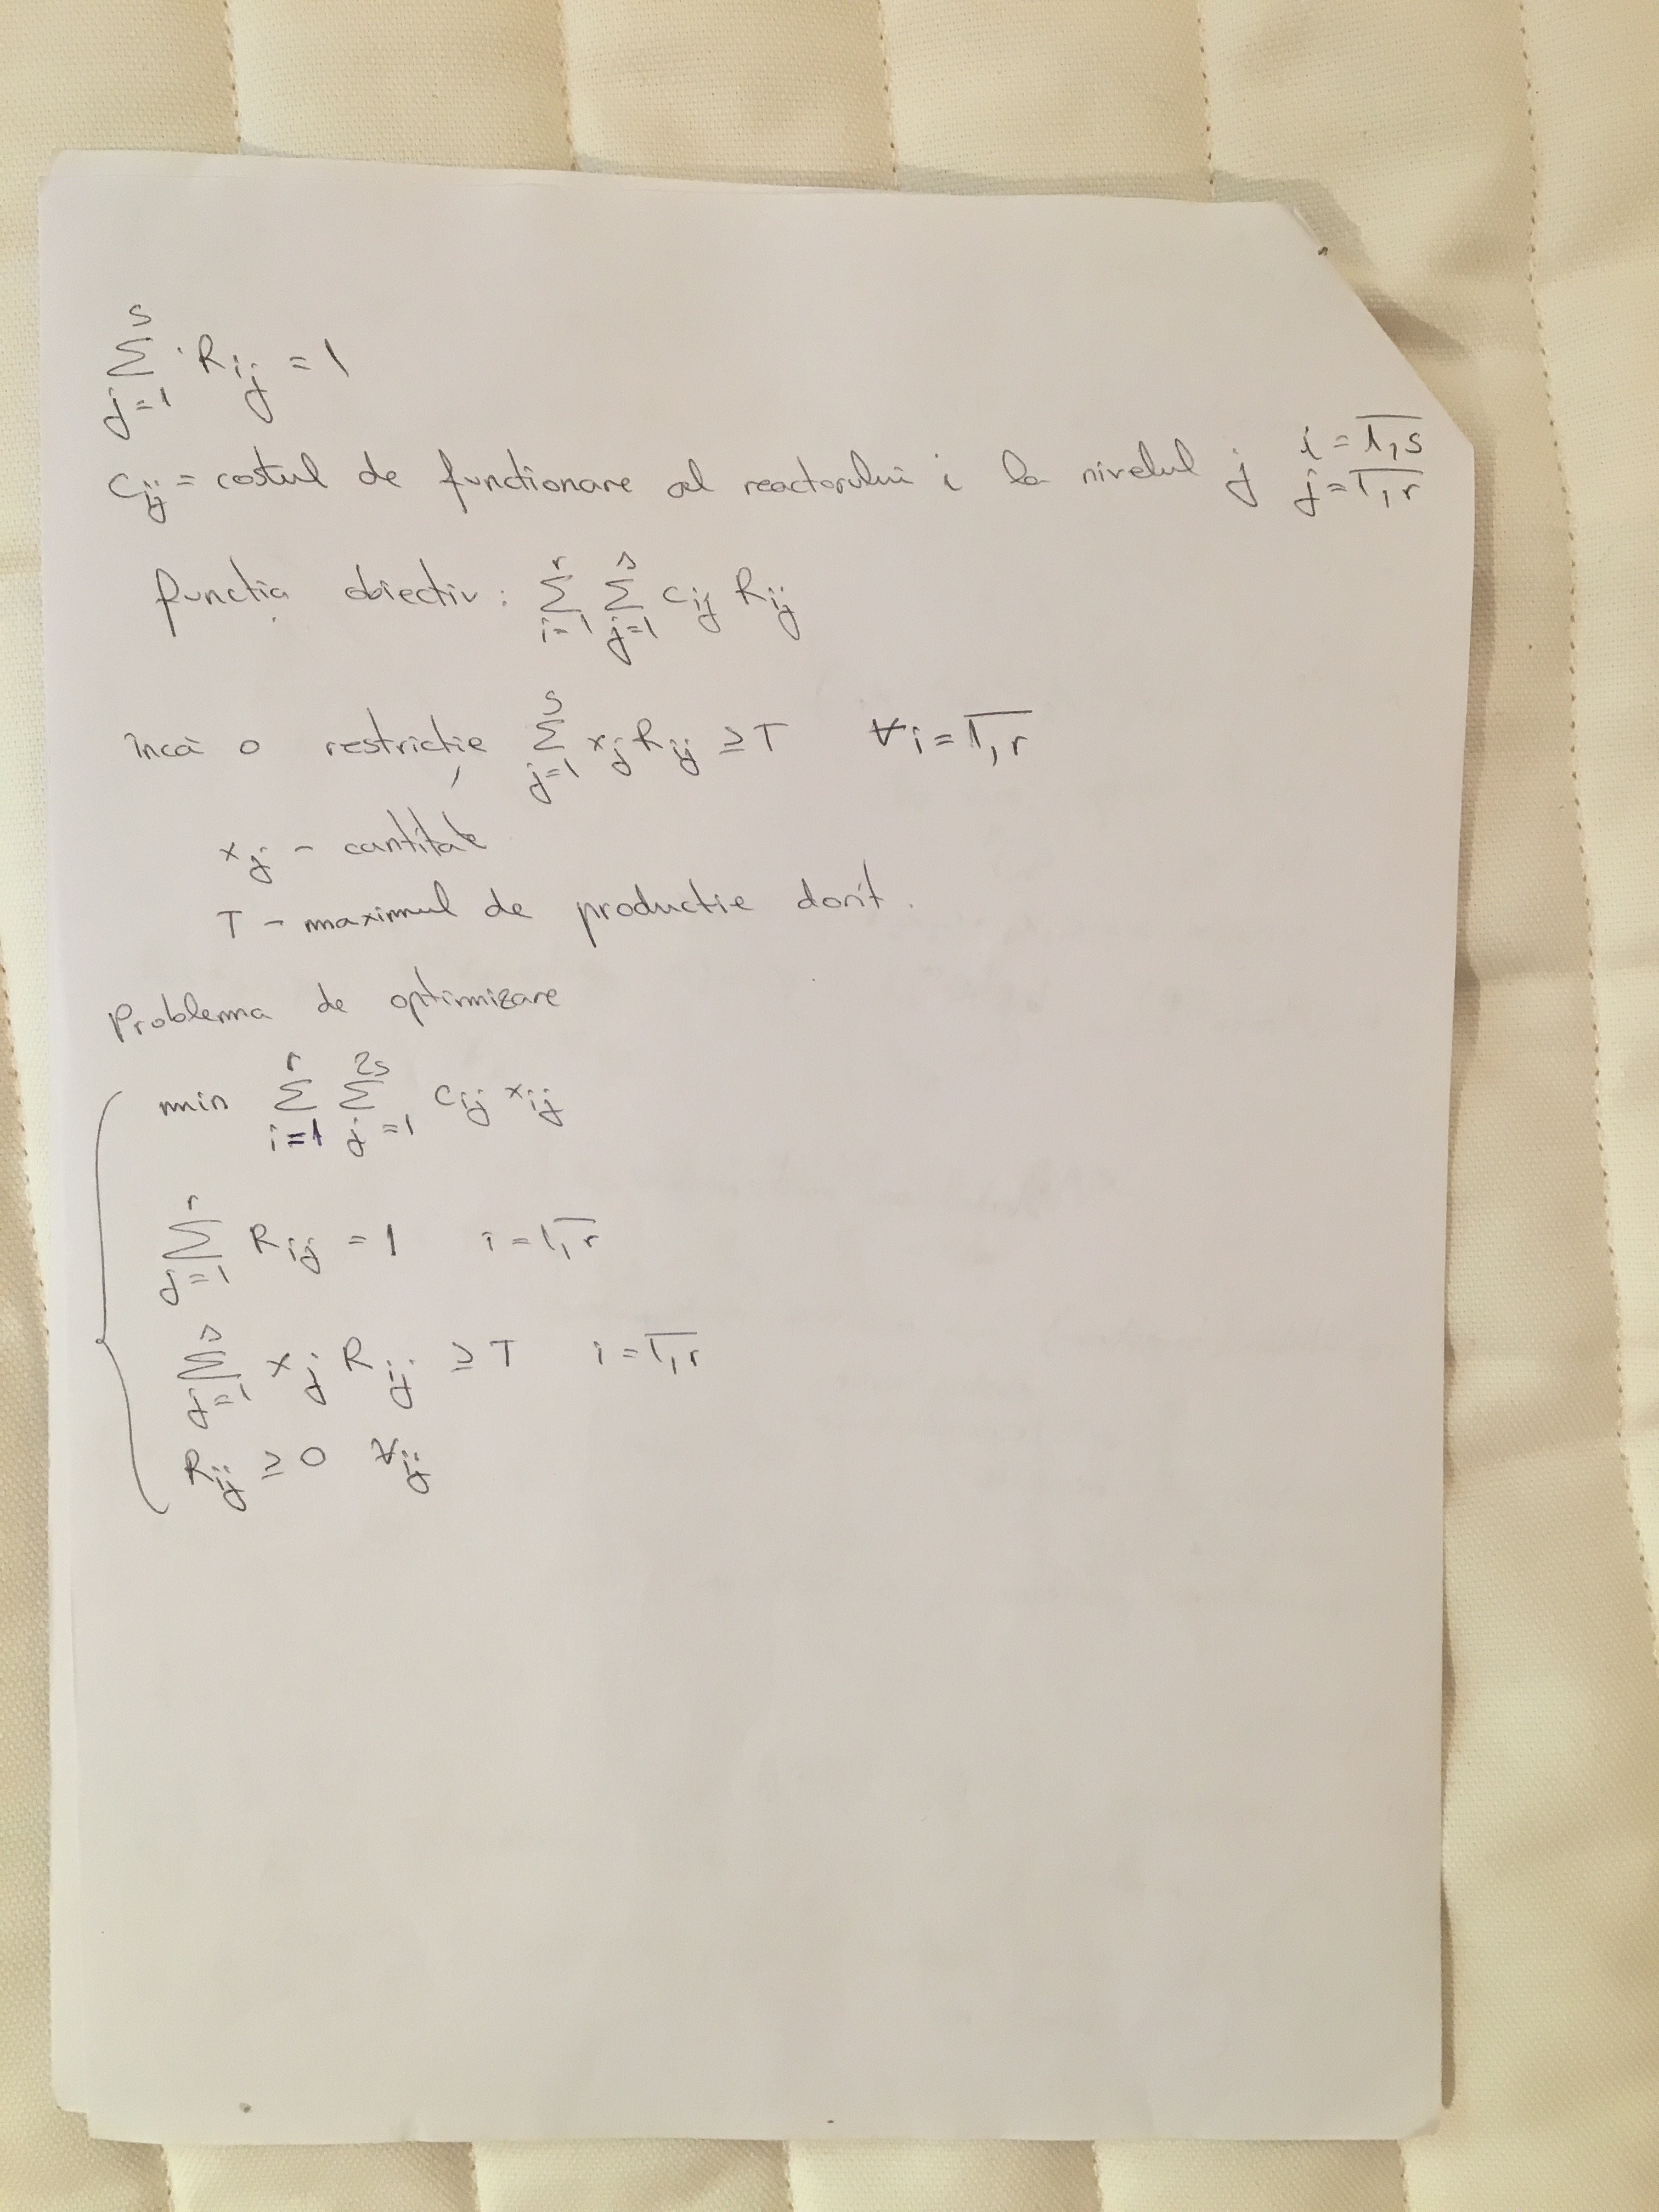 \sum_{j=1}^{s} R_{ij} = 1
c_{ij} = costul de functionare al reactorului i la nivelul j i = \overline{1,s} j = \overline{1,r}
funcția obiectiv: \sum_{i=1}^{r} \sum_{j=1}^{s} c_{ij} R_{ij}
încă o restricție \sum_{j=1}^{s} x_j R_{ij} ≥ T ∀ i = \overline{1,r}
x_j - cantitate
T - maximul de productie dorit.
Problema de optimizare
min \sum_{i=1}^{r} \sum_{j=1}^{2s} c_{ij} x_{ij}
\sum_{j=1}^{r} R_{ij} = 1 i = \overline{1,r}
\sum_{j=1}^{s} x_j R_{ij} ≥ T i = \overline{1,r}
R_{ij} ≥ 0 ∀ ij